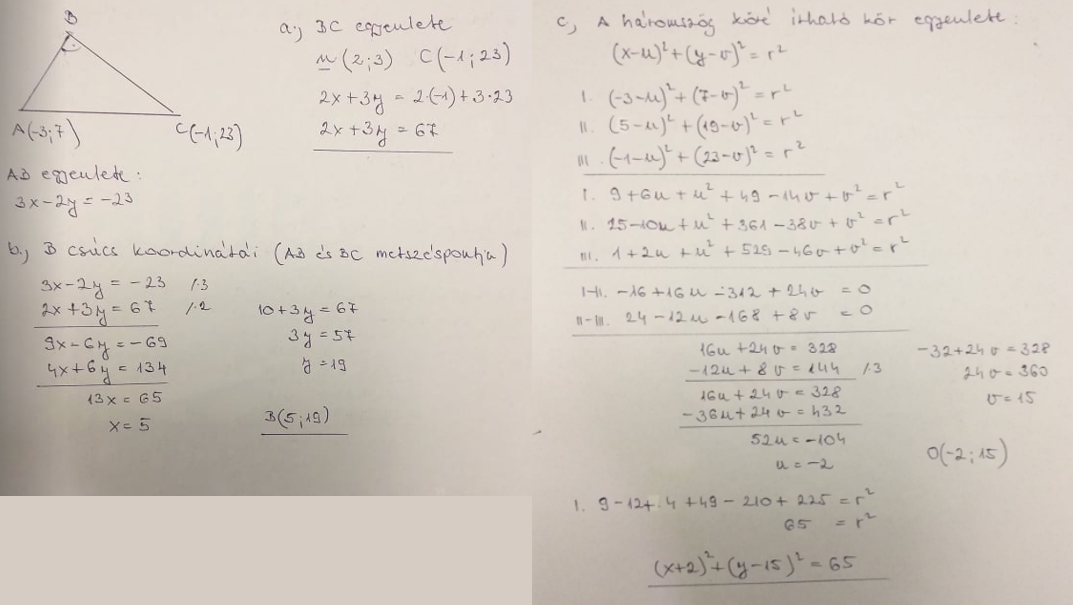 B
A(-3;7)
C(-1;23)
a., BC egyenlete
n(2;3) C(-1;23)
2x+3y = 2·(-1)+3·23
2x+3y = 67
AB egyenlete:
3x-2y = -23
b., B csúcs koordinátái (AB és BC metszéspontja)
3x-2y = -23 /·3
2x+3y = 67 /·2
9x-6y = -69
4x+6y = 134
13x = 65
x = 5
10+3y = 67
3y = 57
y = 19
B(5;19)
c, A háromszög köré írható kör egyenlete:
(x-u)²+(y-v)² = r²
I. (-3-u)²+(7-v)² = r²
II. (5-u)²+(19-v)² = r²
III. (-1-u)²+(23-v)² = r²
I. 9+6u+u²+49-14v+v² = r²
II. 25-10u+u²+361-38v+v² = r²
III. 1+2u+u²+529-46v+v² = r²
I-II. -16+16u-312+24v = 0
II-III. 24-12u-168+8v = 0
16u+24v = 328
-12u+8v = 144 /·3
16u+24v = 328
-36u+24v = 432
52u = -104
u = -2
-32+24v = 328
24v = 360
v = 15
O(-2;15)
I. 9-12+4+49-210+225 = r²
65 = r²
(x+2)²+(y-15)² = 65